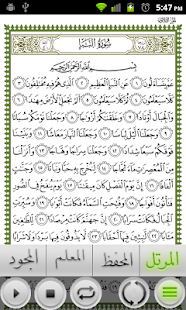 5:47 PM
سورة النبأ
بسم الله الرحمن الرحيم
عم يتساءلون ١ عن النبإ العظيم ٢ الذي هم فيه مختلفون ٣
كلا سيعلمون ٤ ثم كلا سيعلمون ٥ ألم نجعل الأرض مهادا ٦
والجبال أوتادا ٧ وخلقناكم أزواجا ٨ وجعلنا نومكم سباتا ٩
وجعلنا الليل لباسا ١٠ وجعلنا النهار معاشا ١١ وبنينا
فوقكم سبعا شدادا ١٢ وجعلنا سراجا وهاجا ١٣ وأنزلنا من
المعصرات ماء ثجاجا ١٤ لنخرج به حبا ونباتا ١٥ وجنات
ألفافا ١٦ إن يوم الفصل كان ميقاتا ١٧ يوم ينفخ في الصور
فتأتون أفواجا ١٨ وفتحت السماء فكانت أبوابا ١٩ وسيرت
الجبال فكانت سرابا ٢٠ إن جهنم كانت مرصادا ٢١ للطاغين
مآبا ٢٢ لابثين فيها أحقابا ٢٣ لا يذوقون فيها بردا ولا شرابا
المرتل المحفظ المعلم المجود